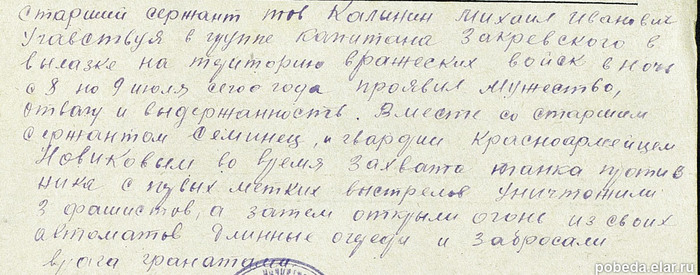 Старший сержант тов Калинин Михаил Иванович
Учавствуя в группе капитана Закревского в
вылазке на територию вражеских войск в ночь
с 8 на 9 июля сего года проявил мужество,
отвагу и выдержанность. Вместе со старшим
сержантом Семинец, и гвардии красноармейцем
Новиковым во время захвата танка против
ника с первых метких выстрелов уничтожили
3 фашистов, а затем открыли огонь из своих
автоматов длинные очереди и забросали
врага гранатами.
pobeda.elar.ru